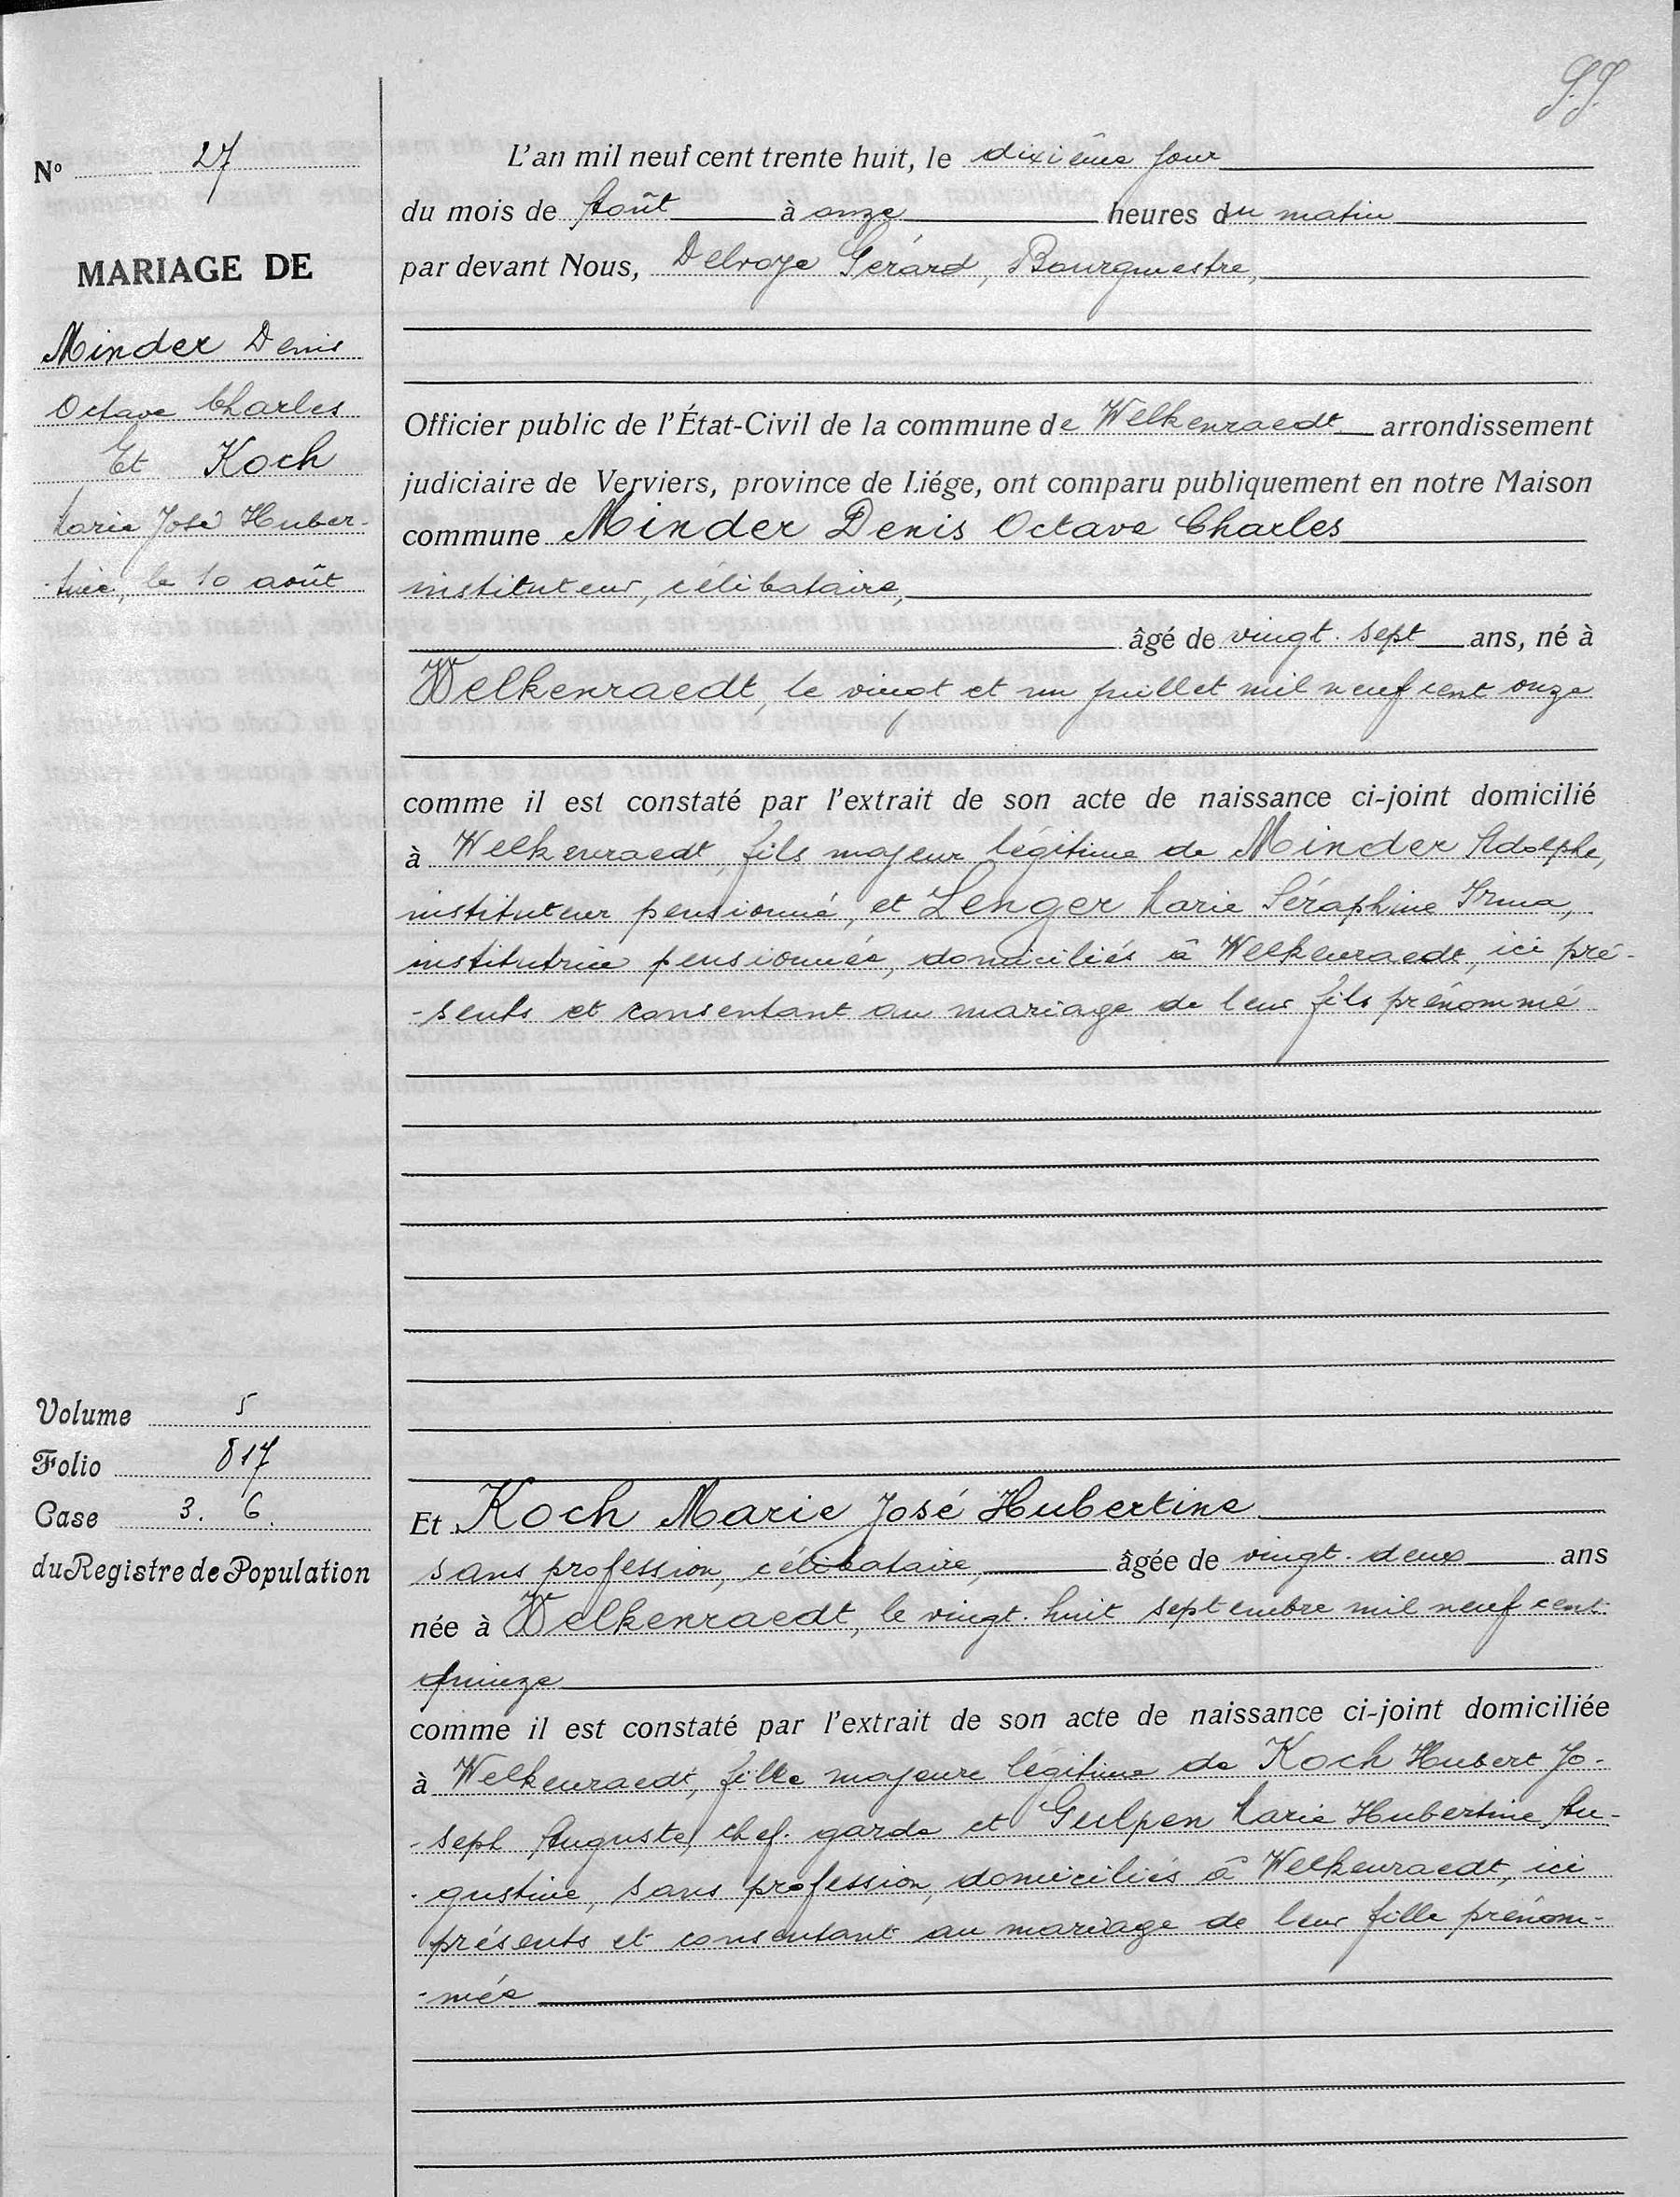 N° 27
MARIAGE DE
Minder Denis
Octave Charles
Et Koch
Marie José Huber-
-tine, le 10 août
Volume 5
Folio 817
Case 3. 6.
du Registre de Population
L'an mil neuf cent trente huit, le dixième jour
du mois de Août à onze heures du matin
par devant Nous, Delroye Gérard, Bourgmestre,
Officier public de l'État-Civil de la commune de Welkenraedt arrondissement
judiciaire de Verviers, province de Liége, ont comparu publiquement en notre Maison
commune Minder Denis Octave Charles
instituteur, célibataire,
âgé de vingt-sept ans, né à
Welkenraedt, le vingt et un juillet mil neuf cent onze
comme il est constaté par l'extrait de son acte de naissance ci-joint domicilié
à Welkenraedt, fils majeur légitime de Minder Adolphe,
instituteur pensionné, et Lenger Marie Séraphine Irma,
institutrice pensionnée, domiciliés à Welkenraedt, ici pré-
-sents et consentant au mariage de leur fils prénommé
Et Koch Marie José Hubertine
sans profession, célibataire, âgée de vingt-deux ans
née à Welkenraedt, le vingt-huit septembre mil neuf cent
quinze
comme il est constaté par l'extrait de son acte de naissance ci-joint domiciliée
à Welkenraedt, fille majeure légitime de Koch Hubert Jo-
-seph Auguste, chef-garde et Gulpen Marie Hubertine Au-
-gustine, sans profession, domiciliés à Welkenraedt, ici
présents et consentant au mariage de leur fille prénom-
-mée